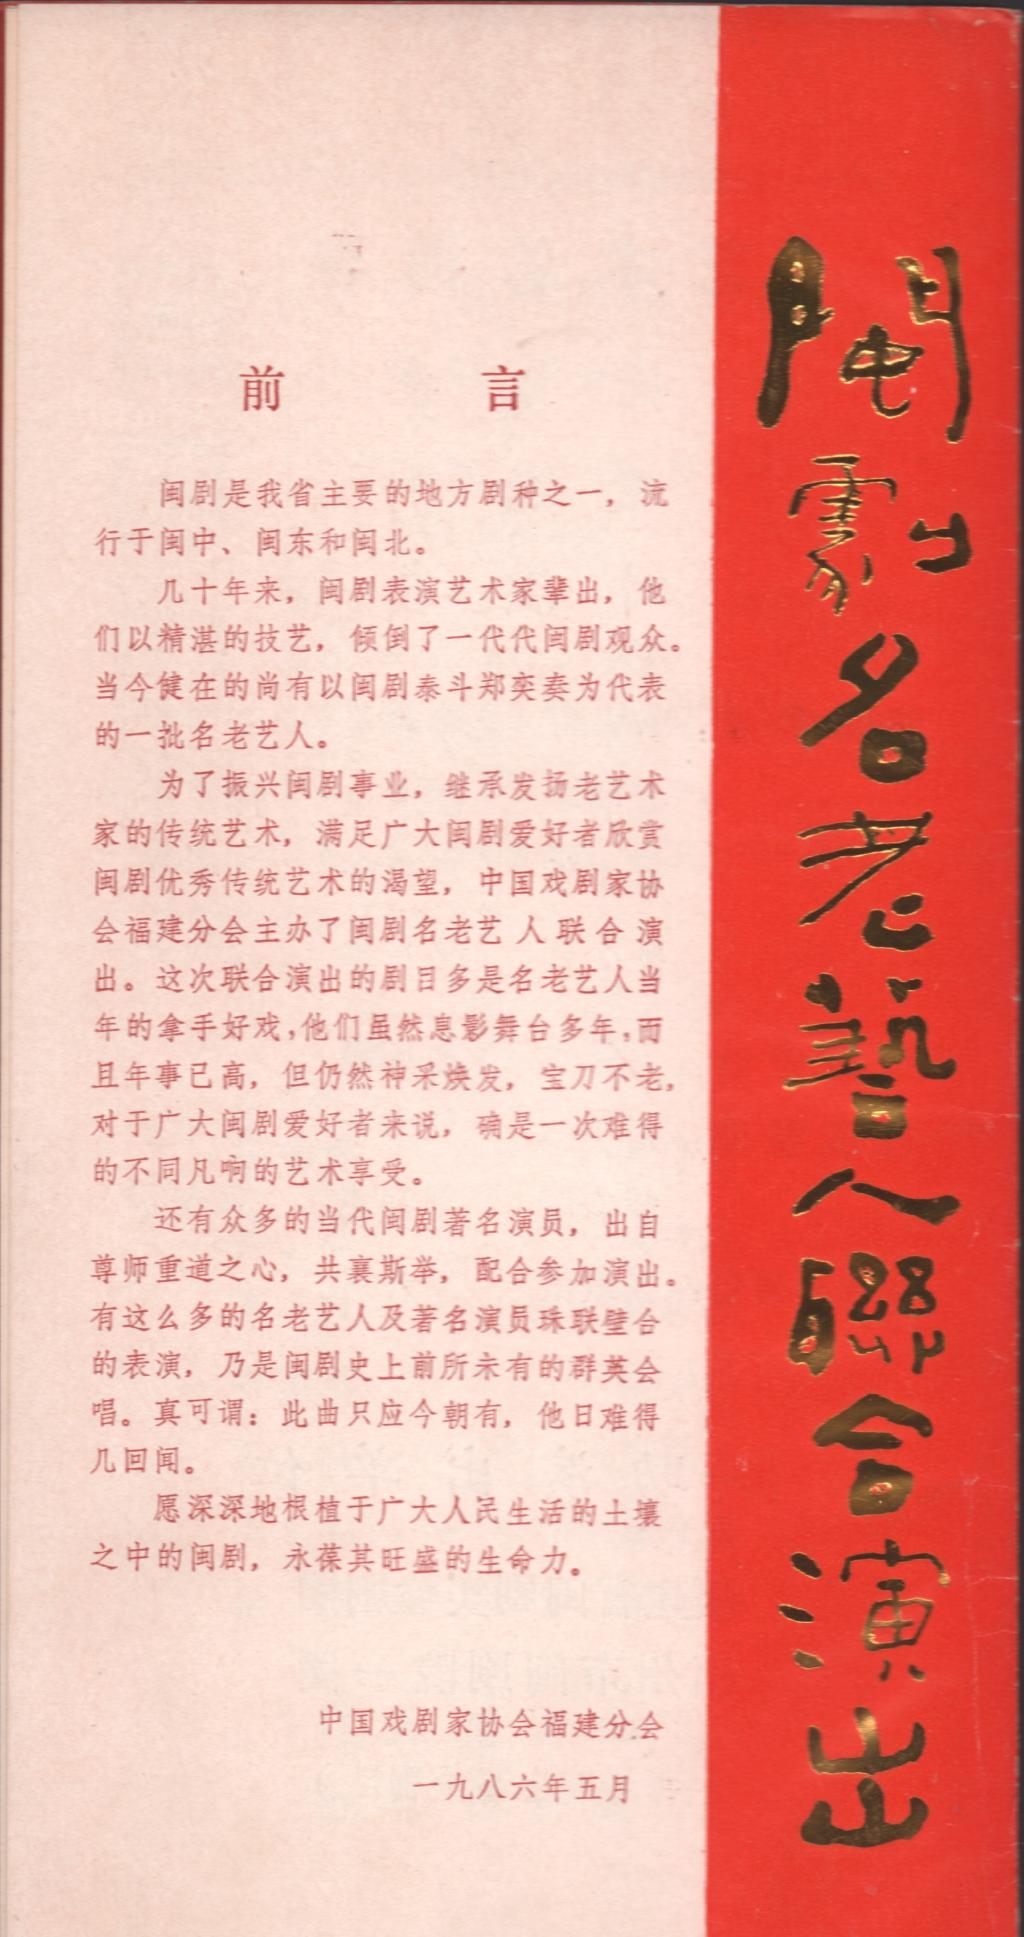 前言
闽剧是我省主要的地方剧种之一，流
行于闽中、闽东和闽北。
几十年来，闽剧表演艺术家辈出，他
们以精湛的技艺，倾倒了一代代闽剧观众。
当今健在的尚有以闽剧泰斗郑奕奏为代表
的一批名老艺人。
为了振兴闽剧事业，继承发扬老艺术
家的传统艺术，满足广大闽剧爱好者欣赏
闽剧优秀传统艺术的渴望，中国戏剧家协
会福建分会主办了闽剧名老艺人联合演
出。这次联合演出的剧目多是名老艺人当
年的拿手好戏，他们虽然息影舞台多年，而
且年事已高，但仍然神采焕发，宝刀不老，
对于广大闽剧爱好者来说，确是一次难得
的不同凡响的艺术享受。
还有众多的当代闽剧著名演员，出自
尊师重道之心，共襄斯举，配合参加演出。
有这么多的名老艺人及著名演员珠联壁合
的表演，乃是闽剧史上前所未有的群英会
唱。真可谓：此曲只应今朝有，他日难得
几回闻。
愿深深地根植于广大人民生活的土壤
之中的闽剧，永葆其旺盛的生命力。
中国戏剧家协会福建分会
一九八六年五月
閩劇名老藝人聯合演出